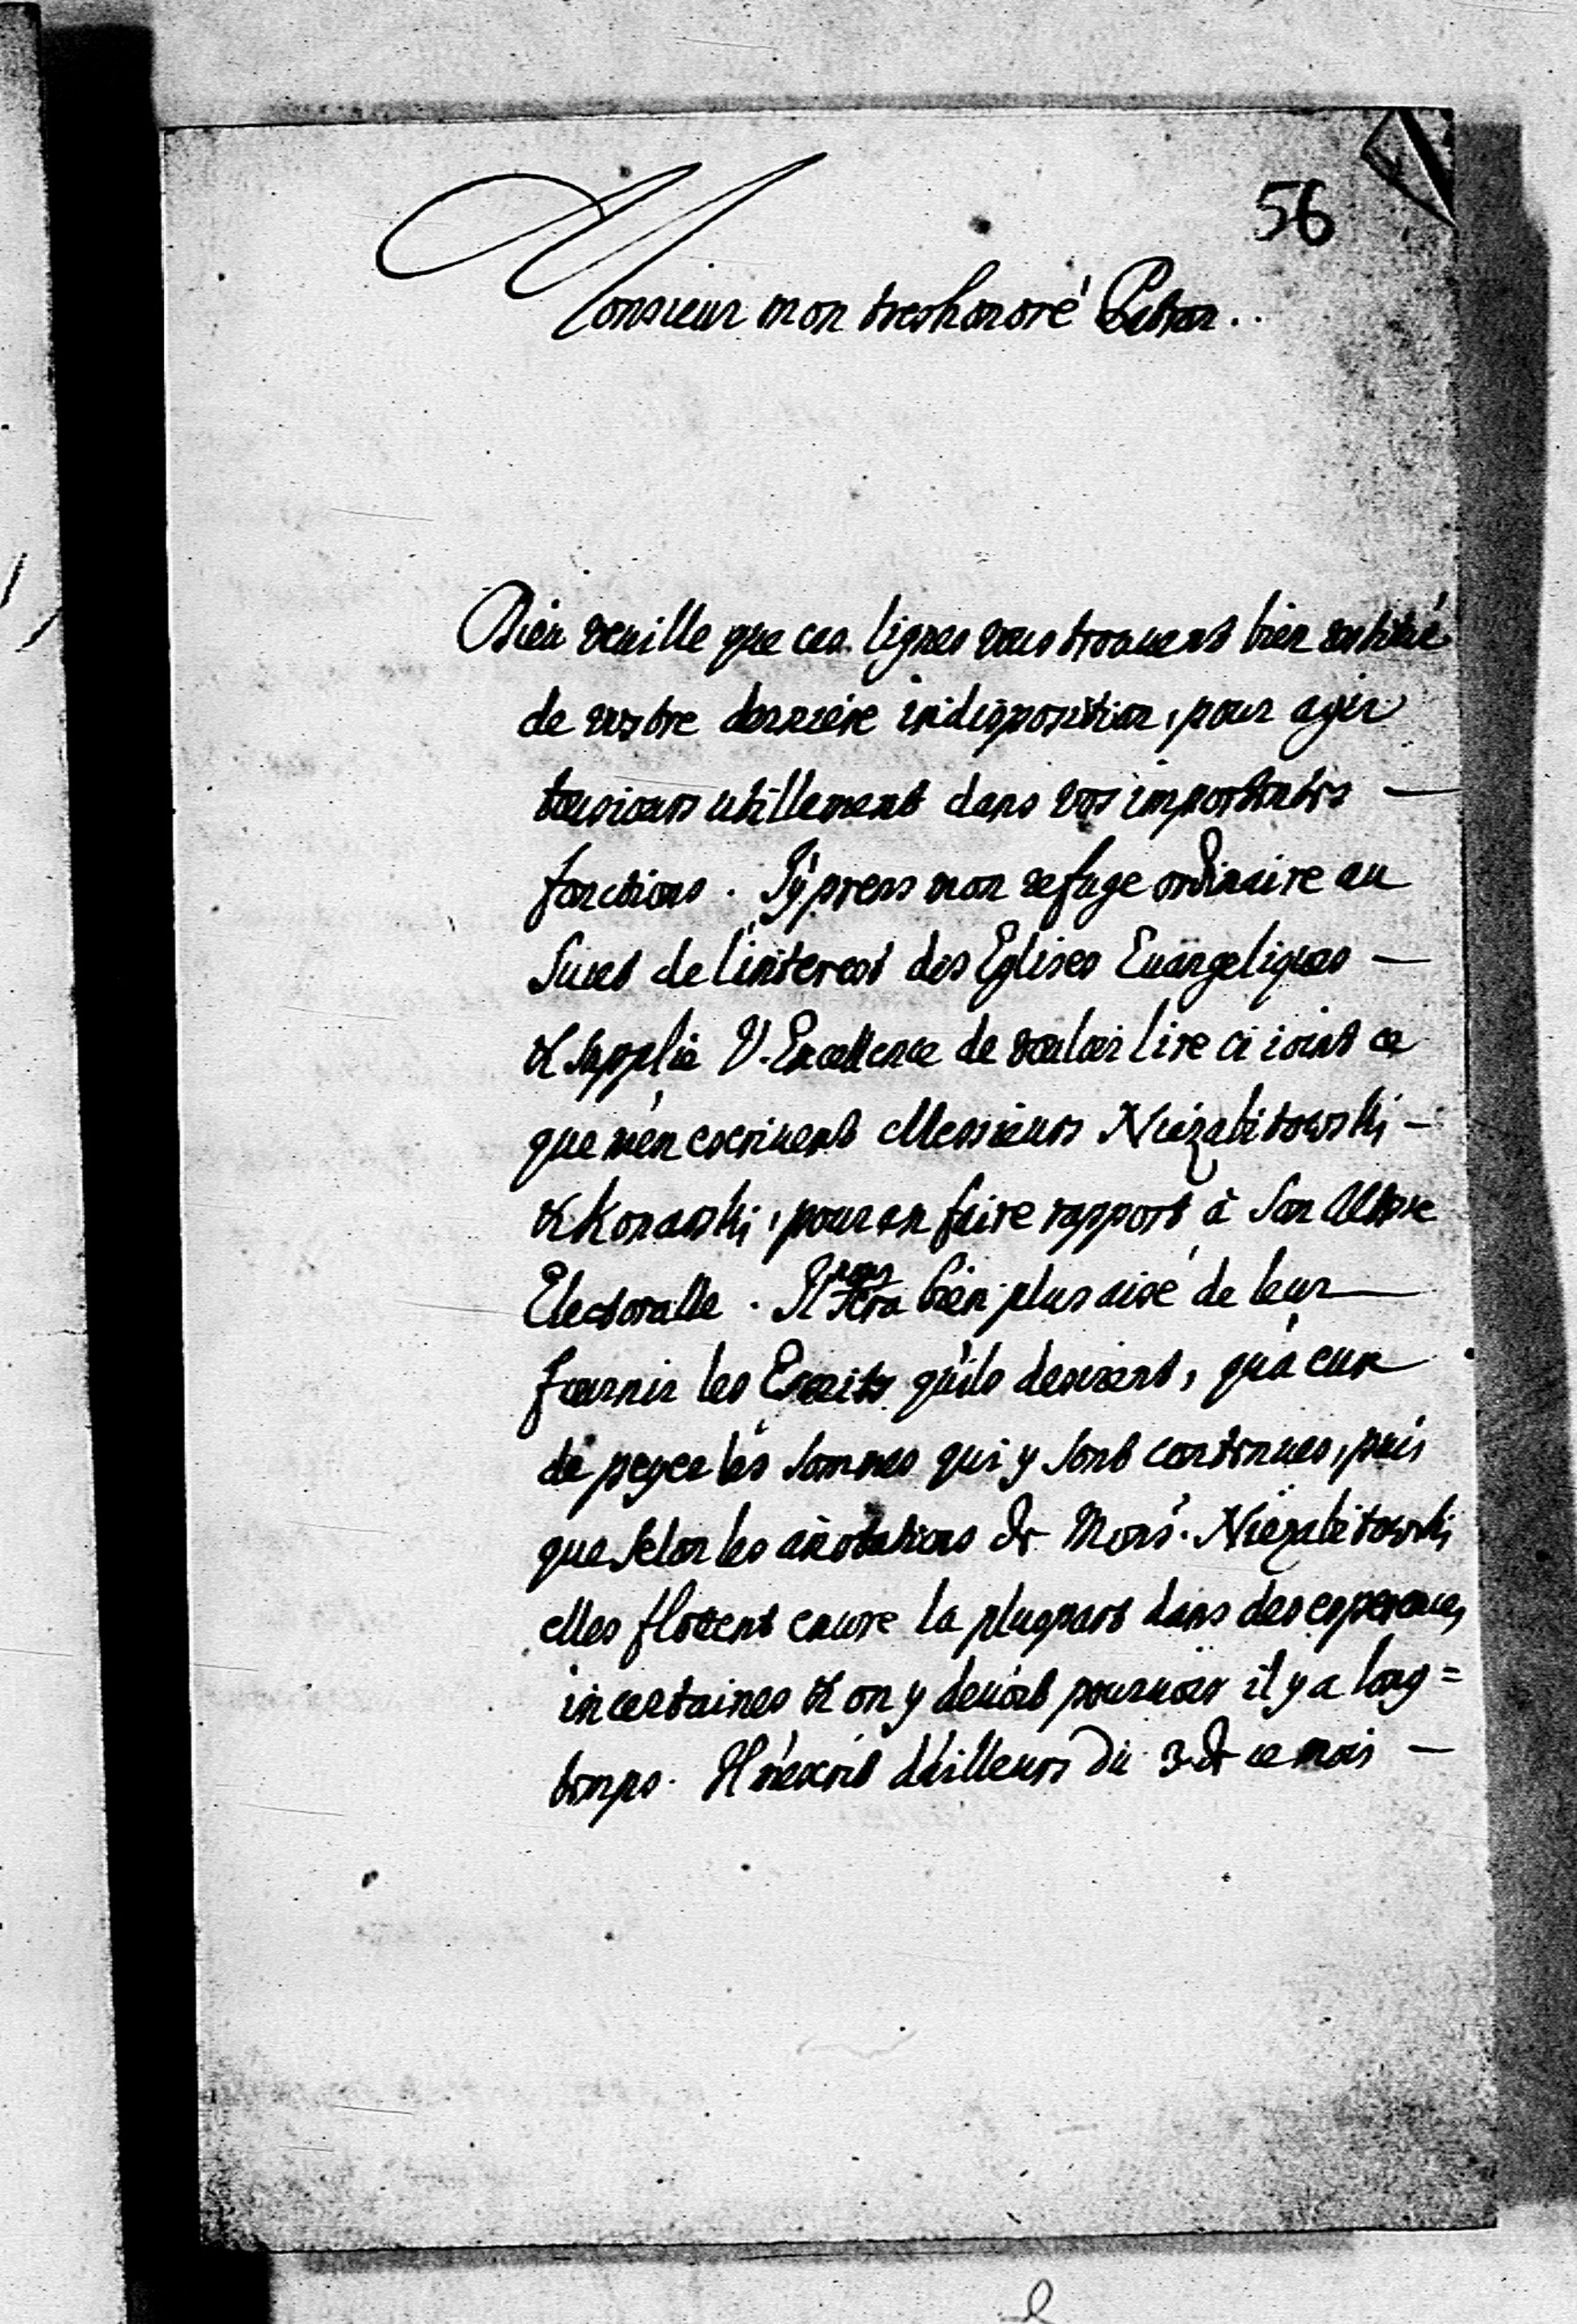 56
Monsieur mon treshonoré Patron..
Dieu veuille que ces lignes vous trouvent bien restitué
de vostre derniére indisposition, pour agir
tousiours utillement dans vos importantes —
fonctions. J'y prens mon refuge ordinaire au
Suiet de l'interest des Eglises Euangeliques —
& supplie V. Excellence de vouloir lire ci ioint ce
que m'en escrivent Messieurs Niezabitowski —
& Konarski, pour en faire rapport à Son Altesse
Electoralle. Il nous sera bien plus aisé de leur —
fournir les Escrits qu'ils desirent, qu'à eux
de payer les sommes qui y sont contenues, puis
que selon les anotations de Mons.r Niezabitowski
elles flotent encore la pluspart dans des esperances
incertaines & on y devoit pourvoir il y a long=
temps. Il m'escrit d'ailleurs du 3 de ce mois —